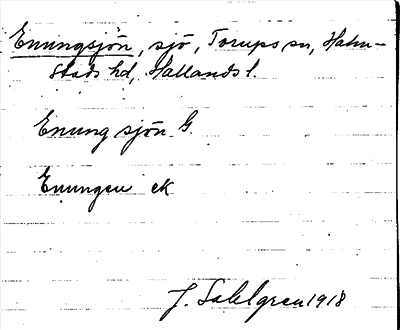 Enungsjön, sjö, Torups sn, Halm-
stads hd, Hallands l.
Enung sjön G.
Enungen ek
J. Sahlgren 1918